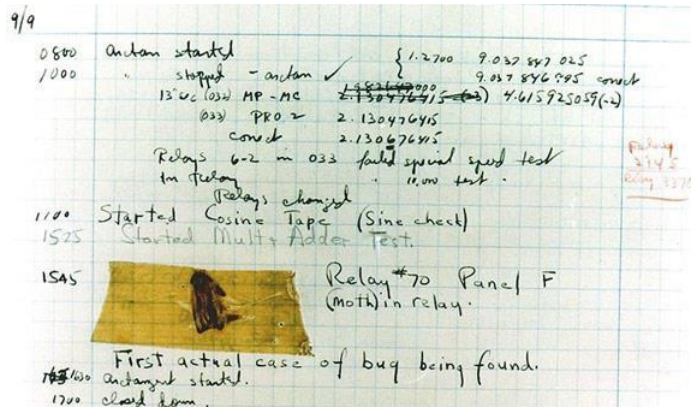 9/9
0800 antan started
1000 " stopped - antan ✓ { 1.2700 9.037 847 025
9.037 846 795 conect
13"uc (032) MP - MC 2.130476415 4.615925059(-2)
(033) PRO 2 2.130476415
conect 2.130676415
Relays 6-2 in 033 failed special speed test
In Relay " 10,000 test .
Relays changed
Relay
2145
Relay 3370
1100 Started Cosine Tape (Sine check)
1525 Started Mult + Adder Test.
1545 Relay #70 Panel F
(moth) in relay.
First actual case of bug being found.
1630 antangent started.
1700 closed down.